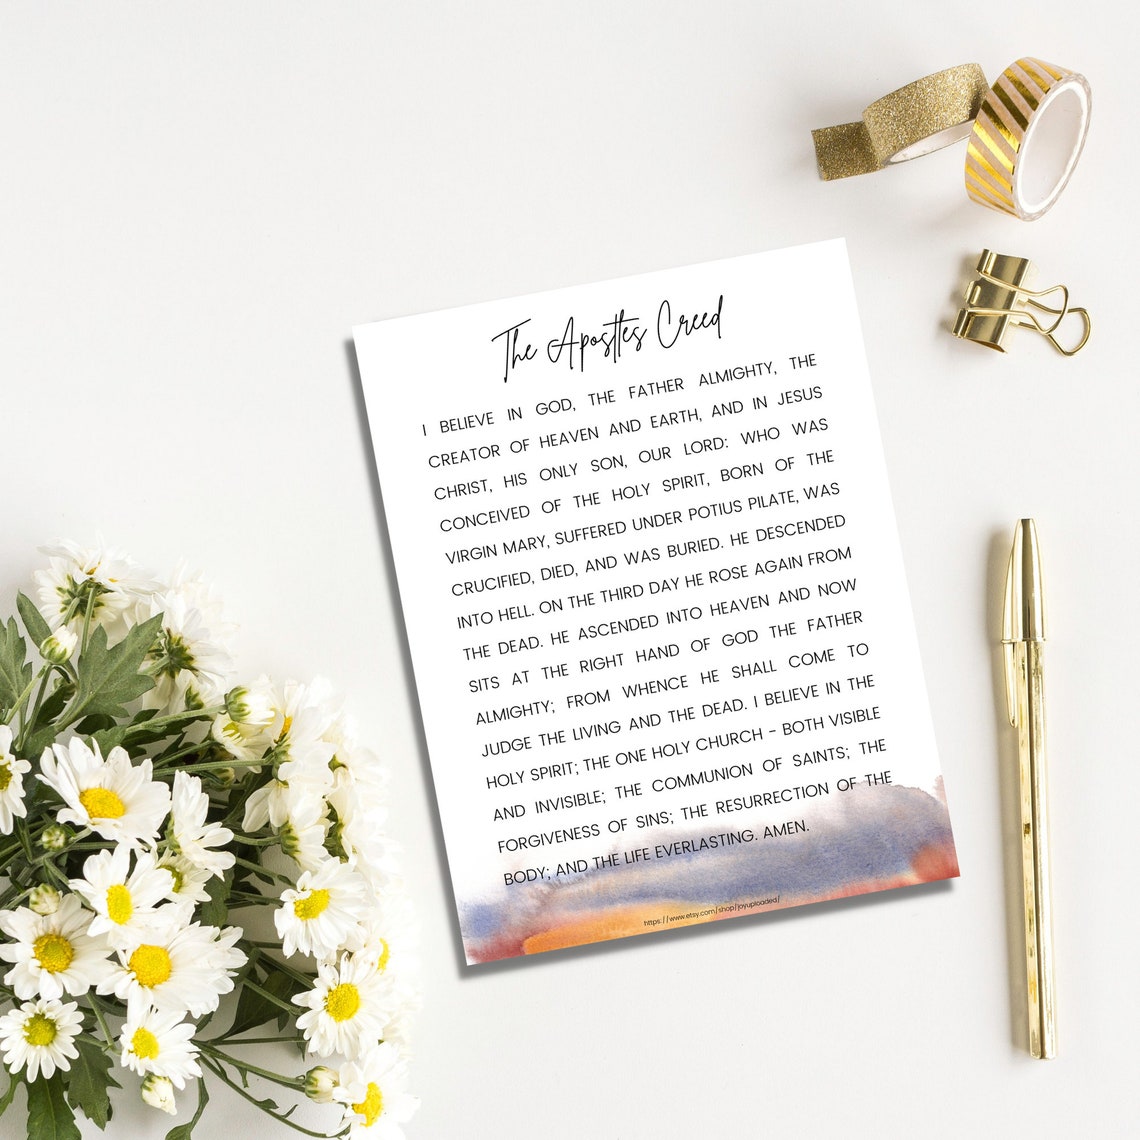 The Apostles Creed
I BELIEVE IN GOD, THE FATHER ALMIGHTY, THE
CREATOR OF HEAVEN AND EARTH, AND IN JESUS
CHRIST, HIS ONLY SON, OUR LORD: WHO WAS
CONCEIVED OF THE HOLY SPIRIT, BORN OF THE
VIRGIN MARY, SUFFERED UNDER POTIUS PILATE, WAS
CRUCIFIED, DIED, AND WAS BURIED. HE DESCENDED
INTO HELL. ON THE THIRD DAY HE ROSE AGAIN FROM
THE DEAD. HE ASCENDED INTO HEAVEN AND NOW
SITS AT THE RIGHT HAND OF GOD THE FATHER
ALMIGHTY; FROM WHENCE HE SHALL COME TO
JUDGE THE LIVING AND THE DEAD. I BELIEVE IN THE
HOLY SPIRIT; THE ONE HOLY CHURCH - BOTH VISIBLE
AND INVISIBLE; THE COMMUNION OF SAINTS; THE
FORGIVENESS OF SINS; THE RESURRECTION OF THE
BODY; AND THE LIFE EVERLASTING. AMEN.
https://www.etsy.com/shop/joyuploaded/